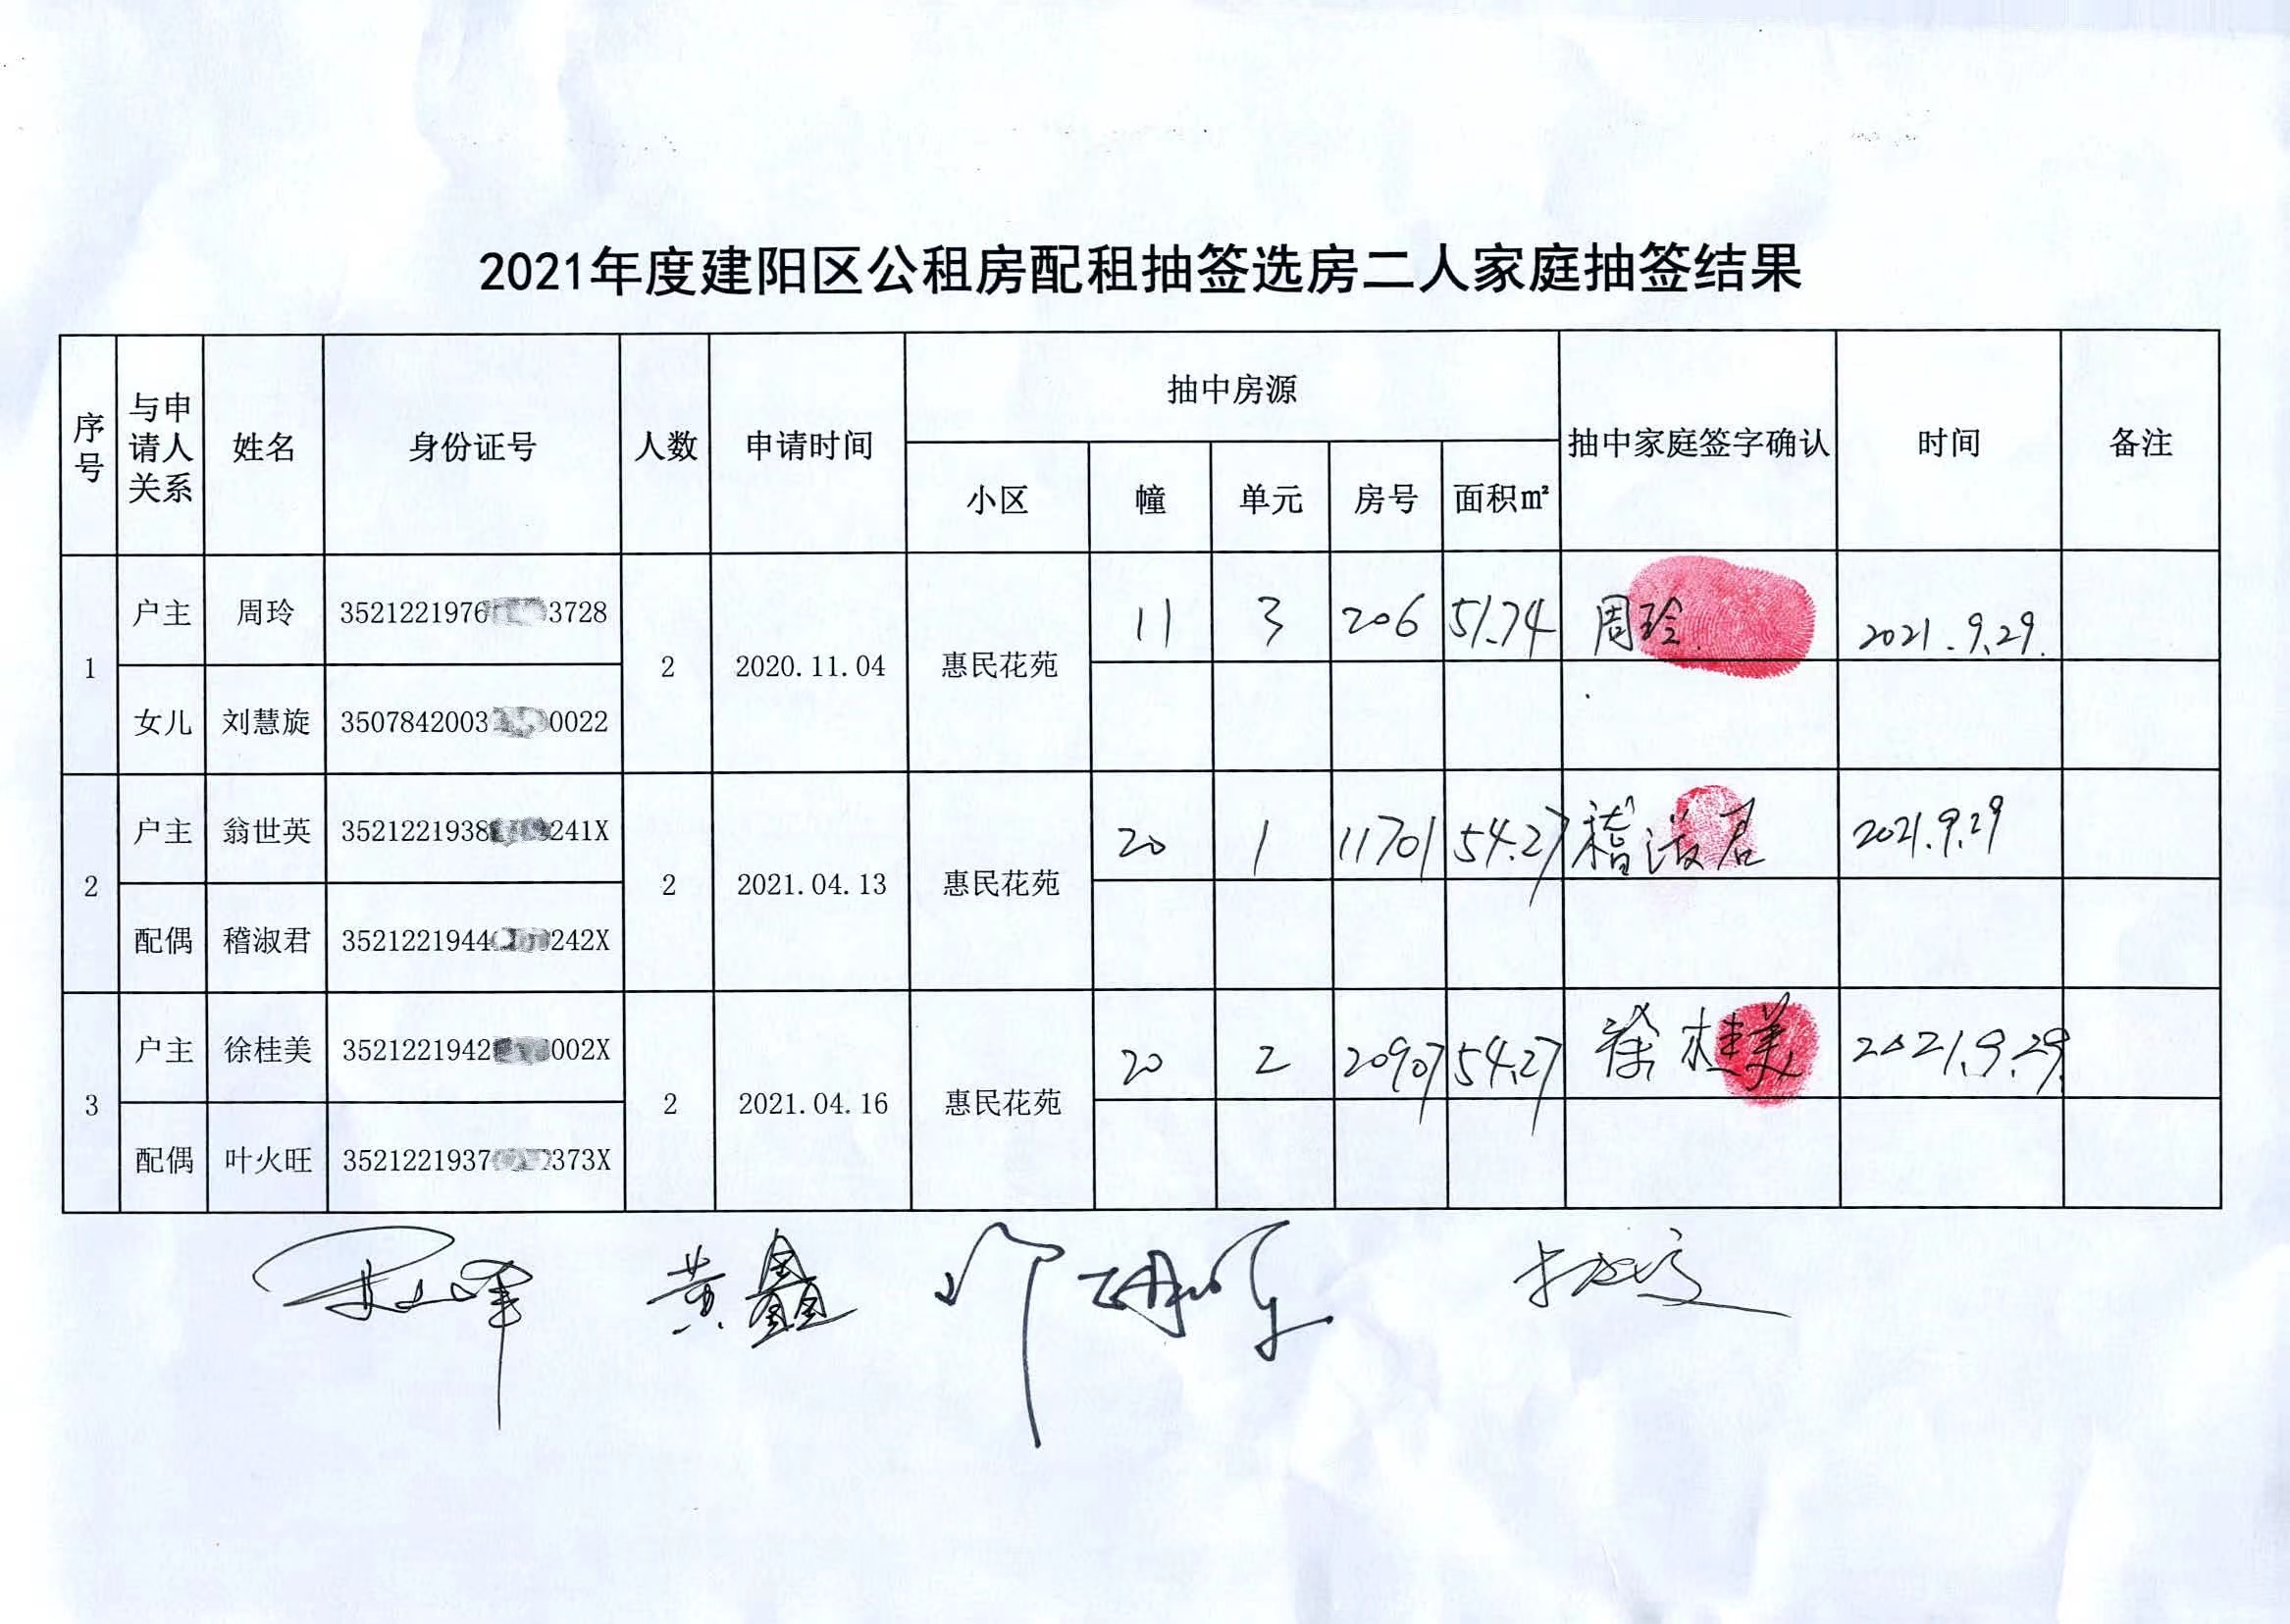 2021年度建阳区公租房配租抽签选房二人家庭抽签结果
序号 与申请人关系 姓名 身份证号 人数 申请时间 抽中房源 抽中家庭签字确认 时间 备注
小区 幢 单元 房号 面积㎡
1 户主 周玲 3521221976 3728 2 2020.11.04 惠民花苑 11 3 206 51.74 周玲 2021.9.29.
女儿 刘慧旋 3507842003 0022
2 户主 翁世英 3521221938 241X 2 2021.04.13 惠民花苑 20 1 11701 54.27 稽淑君 2021.9.29
配偶 稽淑君 3521221944 242X
3 户主 徐桂美 3521221942 002X 2 2021.04.16 惠民花苑 20 2 20907 54.27 徐桂美 2021.9.29.
配偶 叶火旺 3521221937 373X
黄鑫